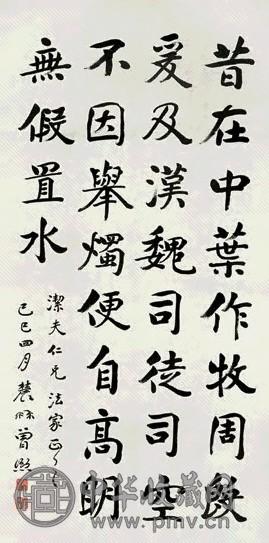 昔在中葉作牧周殷
爰及漢魏司徒司空
不因舉燭便自高明
無假置水
潔夫仁兄法家正之
己巳四月農髯曾熙
中华收藏网
www.pmv.cn